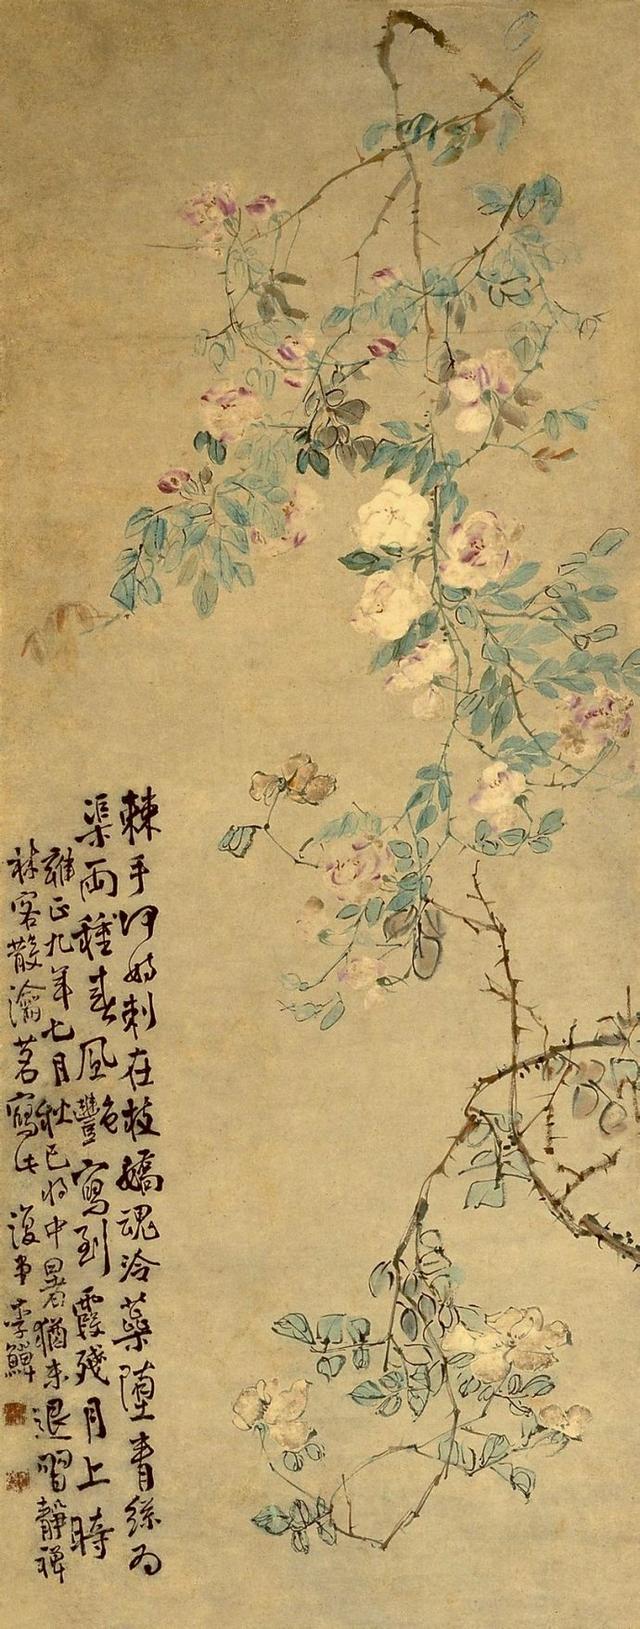 棘手何妨刺在枝嬌魂冷蘂墮青絲為
渠両種春風艷寫到霞殘月上時
雍正九年七月秋已将中暑猶未退習靜禅
林客散瀹茗寫此 復堂李鱓